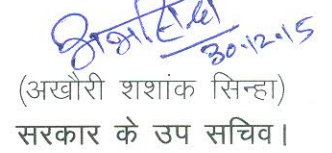 30.12.15
(अखौरी शशांक सिन्हा)
सरकार के उप सचिव।